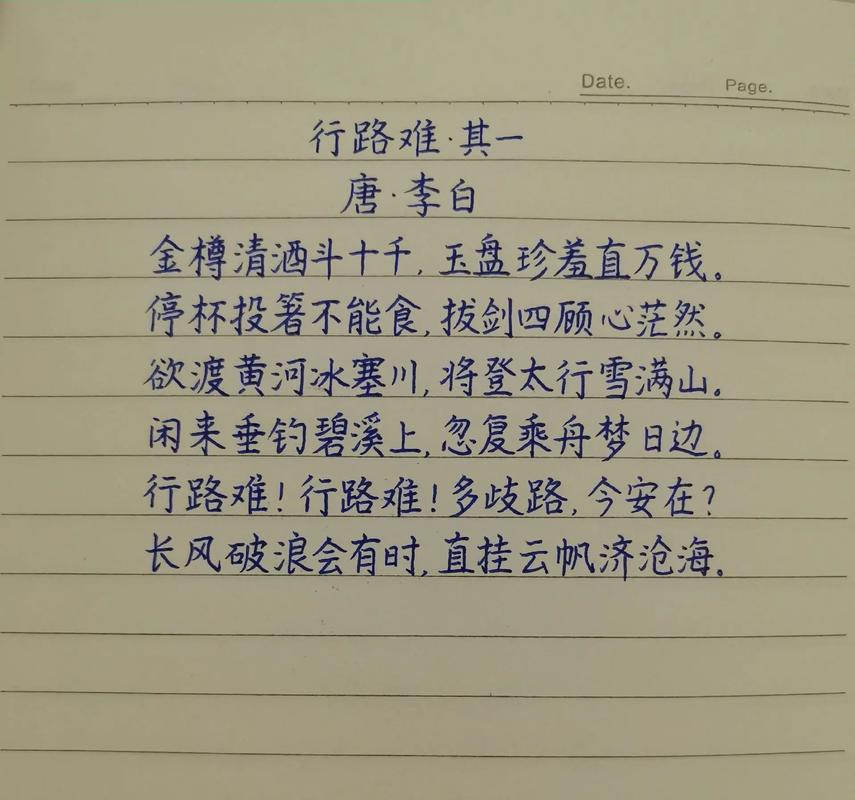 Date. Page.
行路难·其一
唐·李白
金樽清酒斗十千,玉盘珍羞直万钱。
停杯投箸不能食,拔剑四顾心茫然。
欲渡黄河冰塞川,将登太行雪满山。
闲来垂钓碧溪上,忽复乘舟梦日边。
行路难!行路难!多歧路,今安在?
长风破浪会有时,直挂云帆济沧海。